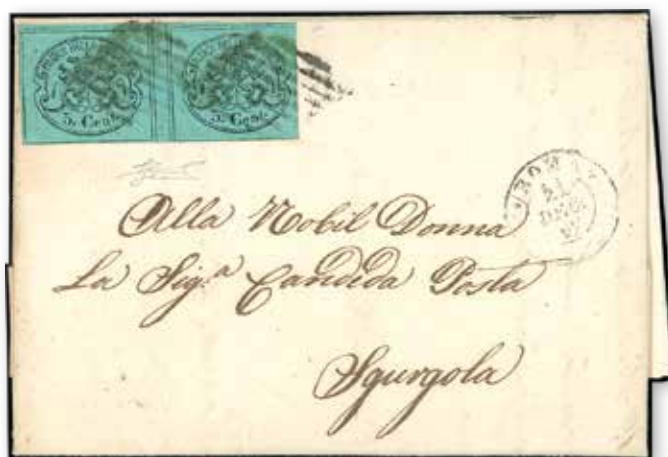 5. Cent. 5. Cent.
ROMA
21
DEC
Alla Nobil Donna
La Sig.ª Candida Posta
Sgurgola